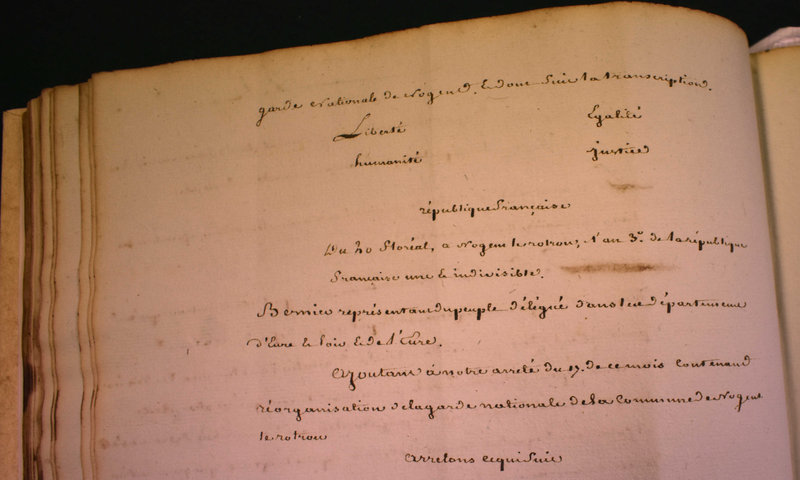 garde Nationale de Nogent. & dont suit la transcription.
Liberté Egalité
humanité justice
république française
Du 20 floréal, a Nogent le rotrou, l'an 3e. de la république
française une & indivisible.
Bernier représentant du peuple délégué dans les départements
d'Eure & loir & de l'Eure.
Ajoutant a notre arrêté du 17. de ce mois contenant
réorganisation de la garde nationale de la Commune de Nogent
le rotrou
Arretons ce qui suit